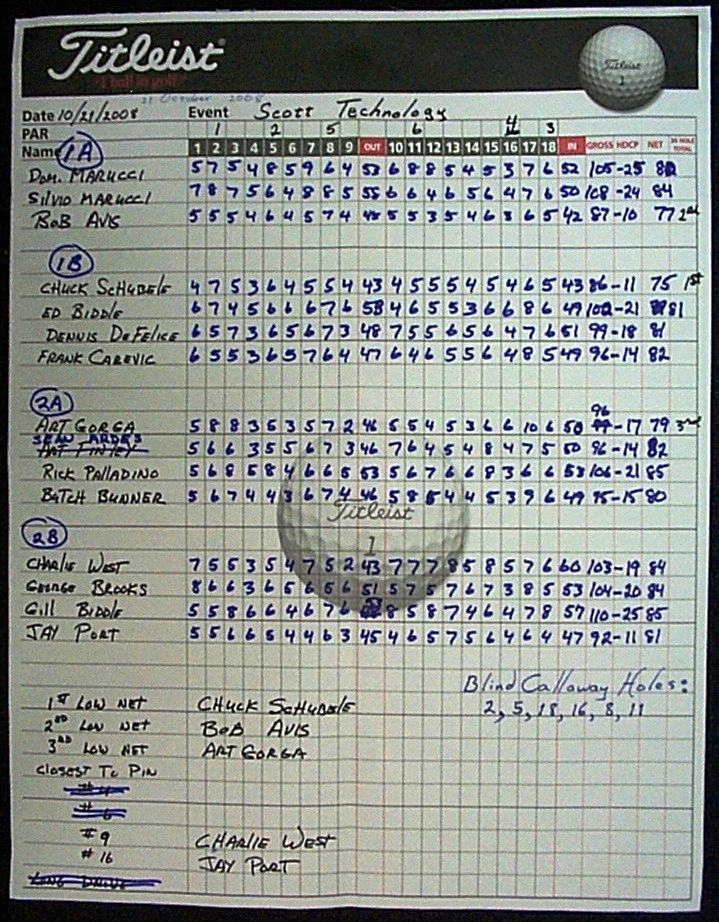 Titleist
#1 ball in golf.
21 October 2008
Date 10/21/2008 Event Scott Technology
PAR 1 2 5 6 4 3
Name 1 2 3 4 5 6 7 8 9 OUT 10 11 12 13 14 15 16 17 18 IN GROSS HDCP NET 36 HOLE TOTAL
1A
Dom. MARUCCI 5 7 5 4 8 5 9 6 4 53 6 8 8 5 4 5 3 7 6 52 105-25 80
SILVIO MARUCCI 7 8 7 5 6 4 8 8 5 55 6 6 4 6 5 6 4 7 6 50 108-24 84
BOB AVIS 5 5 5 4 6 4 5 7 4 45 5 5 3 5 4 6 3 6 5 42 87-10 77 2nd
1B
CHUCK SCHUBELE 4 7 5 3 6 4 5 5 4 43 4 5 5 5 4 5 4 6 5 43 86-11 75 1st
ED BIDDLE 6 7 4 5 6 6 6 7 6 53 4 6 5 5 3 6 6 8 6 49 102-21 81
DENNIS DeFELICE 6 5 7 3 6 5 6 7 3 48 7 5 5 6 5 6 4 7 6 51 99-18 81
FRANK CAREVIC 6 5 5 3 6 5 7 6 4 47 6 4 6 5 5 6 4 8 5 49 96-14 82
2A
96
ART GORGA 5 8 8 3 5 3 5 7 2 46 5 5 4 5 3 6 6 10 6 50 -17 79 3rd
SEAN ARDES
ART FINLEY 5 6 6 3 5 5 6 7 3 46 7 6 4 5 4 8 4 7 5 50 96-14 82
RICK PALLADINO 5 6 8 5 8 4 6 6 5 53 5 6 7 6 6 8 3 6 6 53 106-21 85
BUTCH BUNNER 5 6 7 4 4 3 6 7 4 46 5 8 5 4 4 5 3 9 6 49 95-15 80
Titleist
1
2B
CHARLIE WEST 7 5 5 3 5 4 7 5 2 43 7 7 7 8 5 8 5 7 6 60 103-19 84
GEORGE BROOKS 8 6 6 3 6 5 6 5 6 51 5 7 5 7 6 7 3 8 5 53 104-20 84
GILL BIDDLE 5 5 8 6 6 4 6 7 6 53 8 5 8 7 4 6 4 7 8 57 110-25 85
JAY PORT 5 5 6 6 5 4 4 6 3 45 4 6 5 7 5 6 4 6 4 47 92-11 81
Blind Callaway Holes:
2, 5, 18, 16, 8, 11
1ST LOW NET CHUCK SCHUBELE
2ND LOW NET BOB AVIS
3RD LOW NET ART GORGA
CLOSEST TO PIN
#4
#6
#9 CHARLIE WEST
#16 JAY PORT
LONG DRIVE